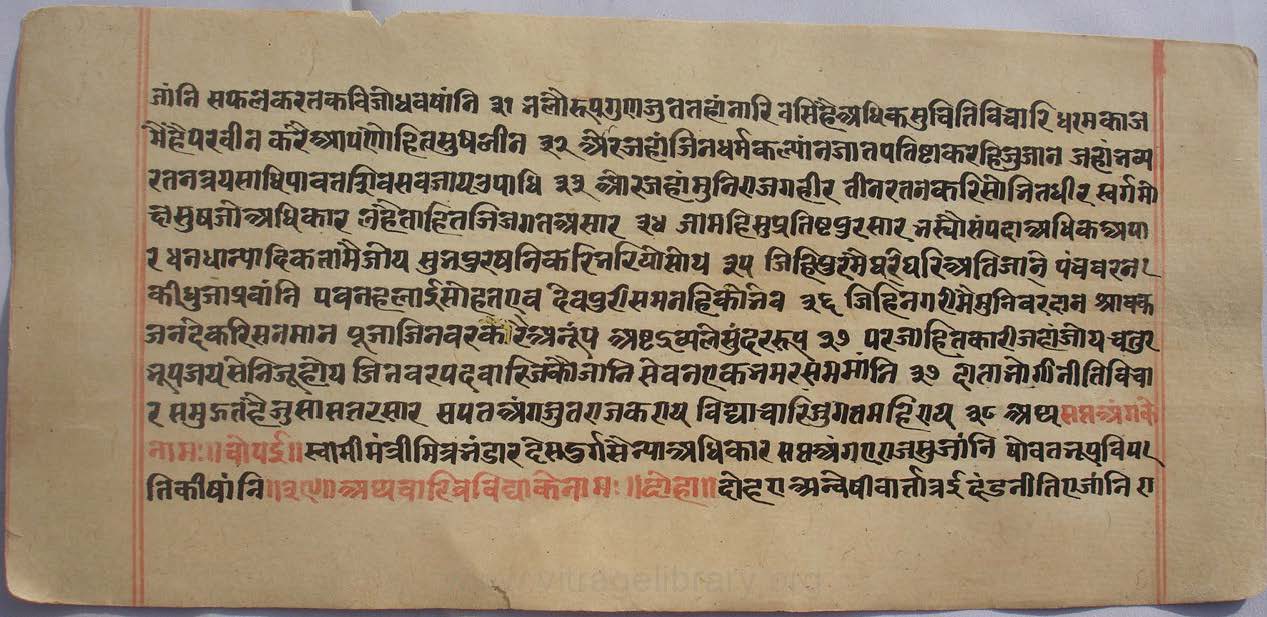 जांनि सफलकरतकविजोधवषांनि ३१ भलौरूपगुणजुततहांनारि वसिहैअधिकसुचितिविचारि धरमकाज
मैहैपरवीन करैआपणोहितसुषलीन ३२ औरजहांजिनधर्मकल्यांन जातपतिष्टाकरहिजुजान जहांभव्य
रतनत्रयसाधि पावतशिवसबजायउपाधि ३३ औरजहांमुनिराजगहीर तीनरतनकरिसोभितधीर स्वर्गमो
क्षसुषजोअधिकार लहैताहितजिजगतअसार ३४ जामहिसुप्रतिष्टपुरसार भस्यौसंपदाअधिकअपा
र धनधान्यादिकतामैजोय सुभपुरषनिकरिभरियोसोय ३५ जिहिपुरमैघरघरिअतिजानि पंचवरन
कीधुजाप्रवांनि पवनहलाईसोहतएव देवपुरीसमनहिकोभेव ३६ जिहिनगरीमैमुनिवरदान श्रावक
जनदेकरिसनमान पूजाजिनवरकीरैअनूप अष्टद्रव्यलेसुंदररूप ३७ परजाहितकारीजहांजोय चतुर
भूपजयसेनिजुहोय जिनवरपदवारिजकौजानि सेवनएकभमरसममांनि ३७ दाताभोगीनीतिविचा
र समुझतहैजुसासतरसार सपतअंगजुतराजकराय विद्याचारिजुगतमहिराय ३८ अथ सप्तअंगके
नाम:॥चौपई॥ स्वामीमंत्रीमित्रभंडार देसदुर्गसैन्याअधिकार सप्तअंगएराजसुजांनि पोषतनृपविपर
तिकीषांनि॥३९॥अथचारिविद्याकेनाम:॥दोहा॥ दोहएअन्वेषीवार्तात्रई दंडनीतिएजांनि ए
www.vitragelibrary.org